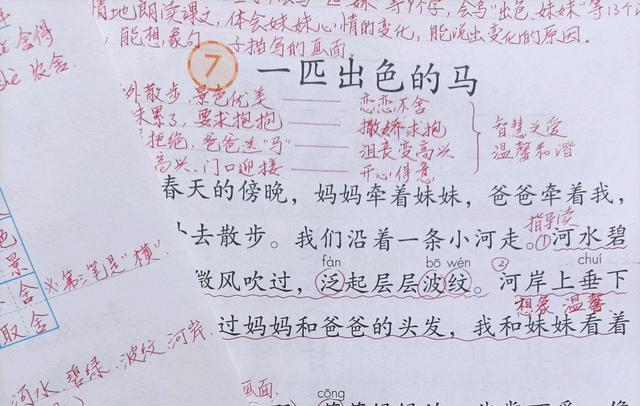 情地朗读课文，体会妹妹心情的变化，能说出变化的原因。
能想象句子描写的画面。
舍得
农舍
7 一匹出色的马
散步，景色优美 —— 恋恋不舍
累了，要求抱抱 —— 撒娇求抱
拒绝，爸爸送"马" —— 沮丧变高兴
高兴、门口迎接 —— 开心得意
智慧关爱
温馨和谐
春天的傍晚，妈妈牵着妹妹，爸爸牵着我，
指导读
去散步。我们沿着一条小河走。①河水碧
fàn bō wén chuí
微风吹过，泛起层层波纹。②河岸上垂下
想象 温馨
过妈妈和爸爸的头发，我和妹妹看着
色
景
舍
取舍
※第三笔是"横"
河水 碧绿 波纹 河岸
画面
cōng